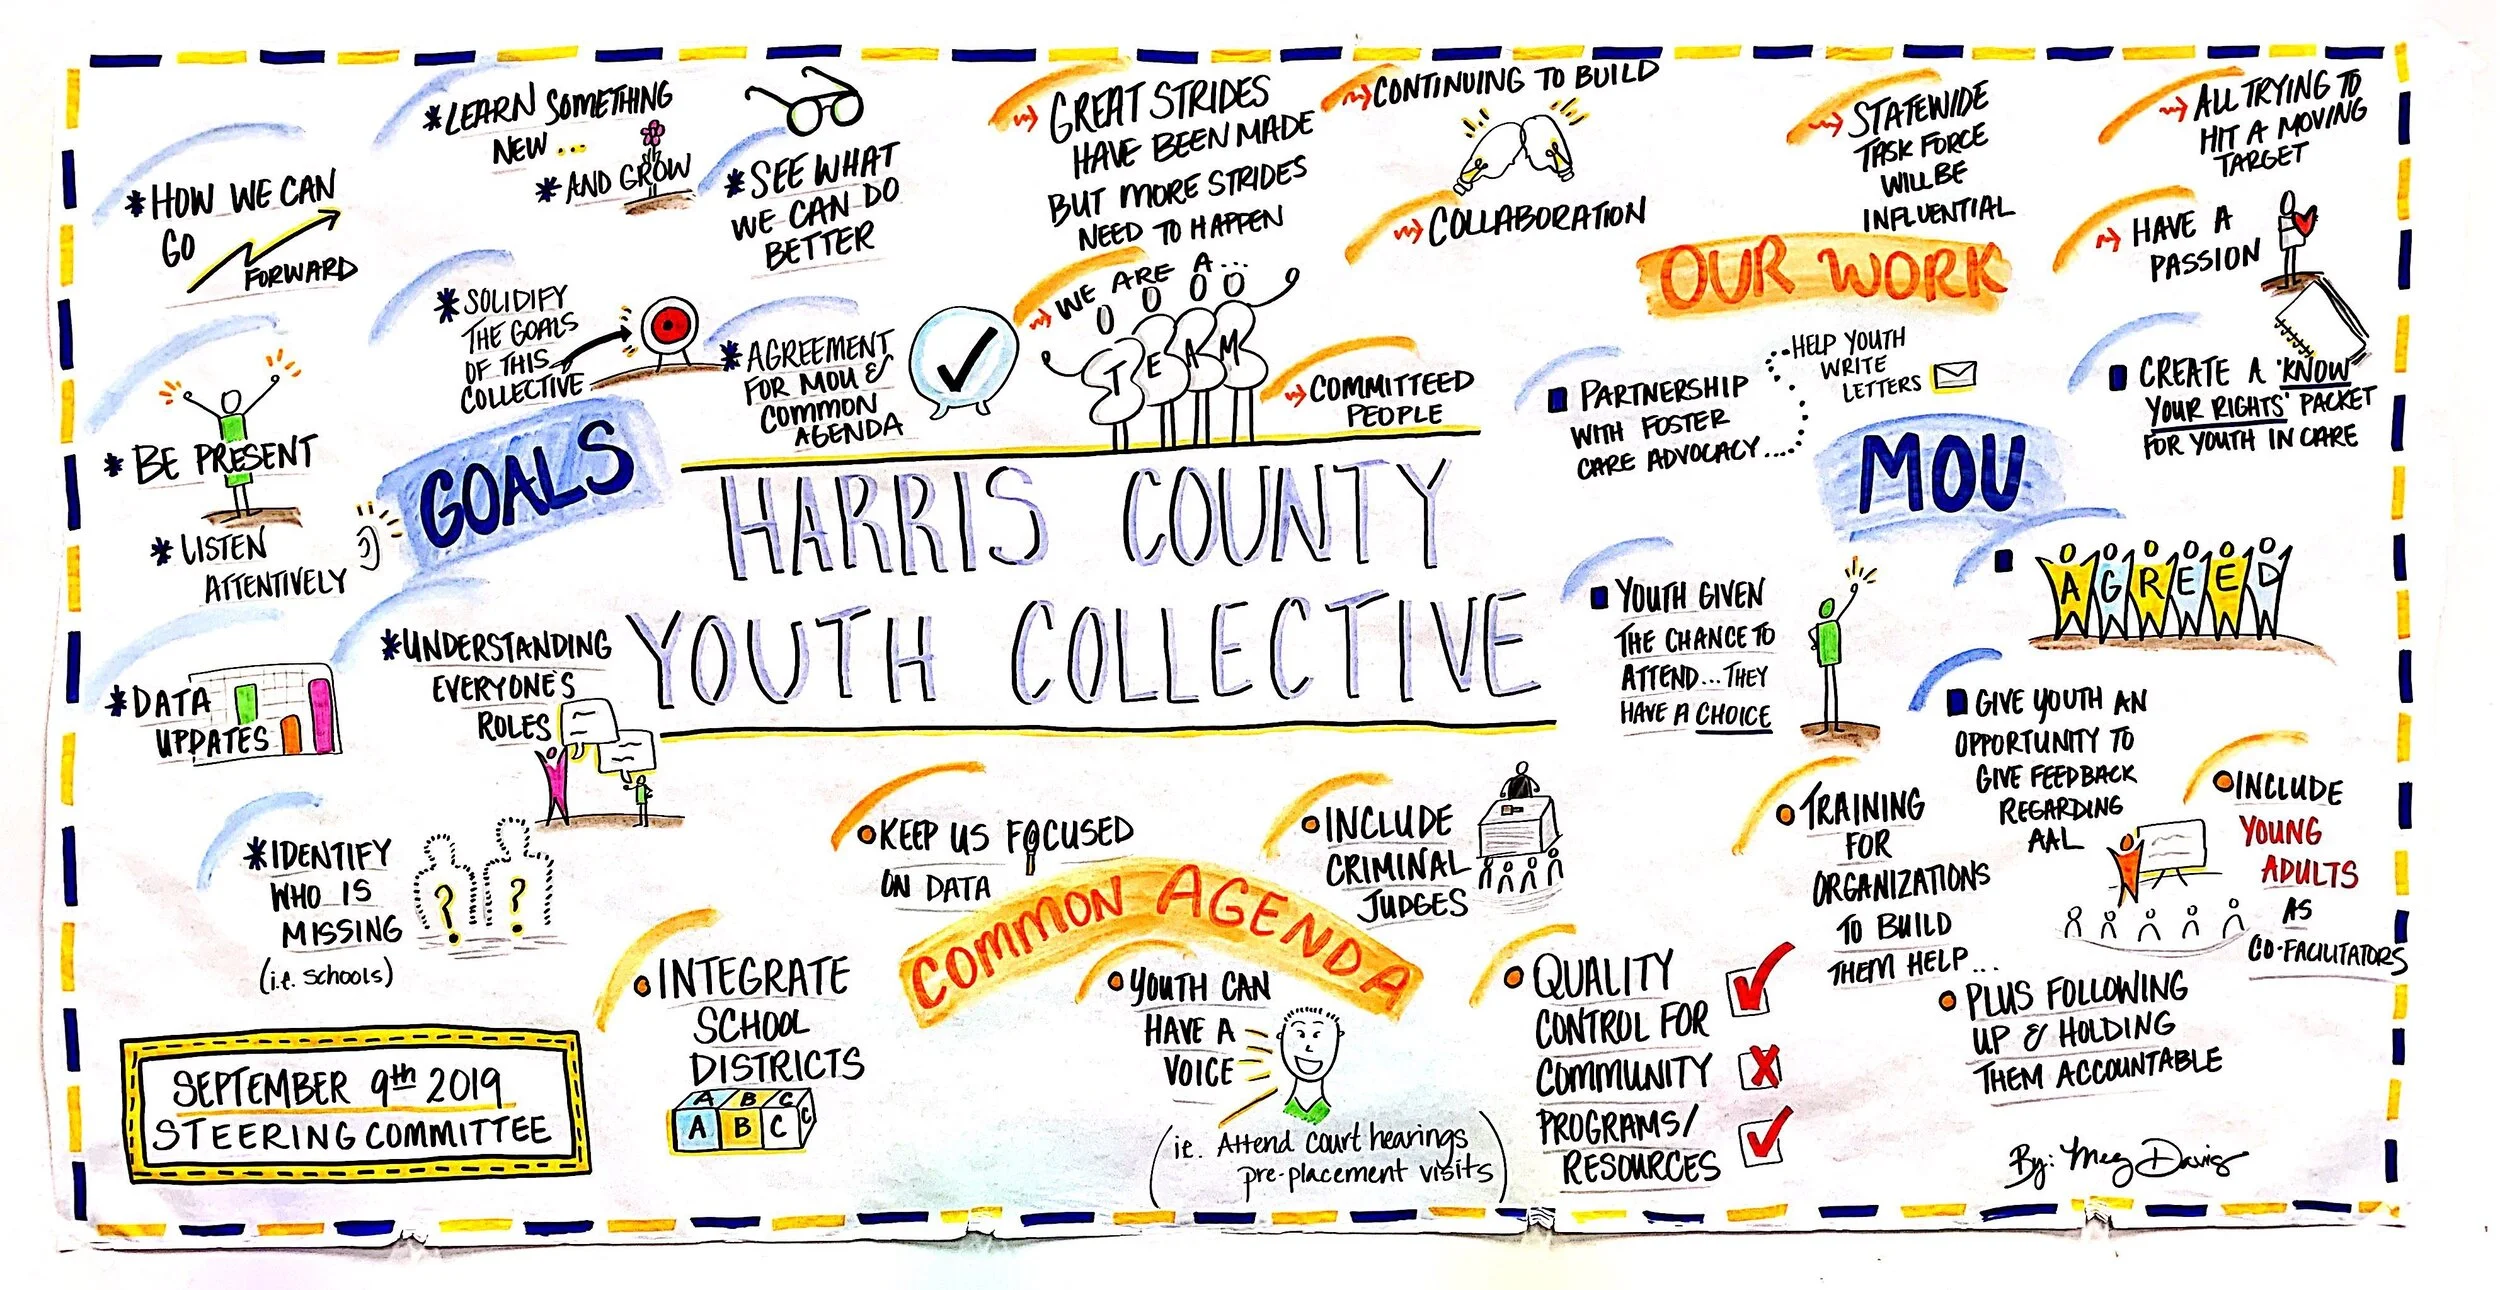 * HOW WE CAN
GO
FORWARD
* LEARN SOMETHING
NEW ...
* AND GROW
* SEE WHAT
WE CAN DO
BETTER
* SOLIDIFY
THE GOALS
OF THIS
COLLECTIVE
* AGREEMENT
FOR MOU &
COMMON
AGENDA
* BE PRESENT
* LISTEN
ATTENTIVELY
GOALS
* DATA
UPDATES
* UNDERSTANDING
EVERYONE'S
ROLES
* IDENTIFY
WHO IS
MISSING
(i.e. schools)
? ?
SEPTEMBER 9th 2019
STEERING COMMITTEE
GREAT STRIDES
HAVE BEEN MADE
BUT MORE STRIDES
NEED TO HAPPEN
CONTINUING TO BUILD
COLLABORATION
WE ARE A...
TEAM
COMMITTEED
PEOPLE
STATEWIDE
TASK FORCE
WILL BE
INFLUENTIAL
ALL TRYING TO
HIT A MOVING
TARGET
HAVE A
PASSION
OUR WORK
HARRIS COUNTY
YOUTH COLLECTIVE
PARTNERSHIP
WITH FOSTER
CARE ADVOCACY....
HELP YOUTH
WRITE
LETTERS
CREATE A 'KNOW
YOUR RIGHTS' PACKET
FOR YOUTH IN CARE
MOU
YOUTH GIVEN
THE CHANCE TO
ATTEND... THEY
HAVE A CHOICE
AGREED
GIVE YOUTH AN
OPPORTUNITY TO
GIVE FEEDBACK
REGARDING
AAL
KEEP US FOCUSED
ON DATA
INCLUDE
CRIMINAL
JUDGES
COMMON AGENDA
INTEGRATE
SCHOOL
DISTRICTS
A B C
A B C C
YOUTH CAN
HAVE A
VOICE
(ie. Attend court hearings
pre-placement visits)
QUALITY
CONTROL FOR
COMMUNITY
PROGRAMS/
RESOURCES
TRAINING
FOR
ORGANIZATIONS
TO BUILD
THEM HELP...
INCLUDE
YOUNG
ADULTS
AS
CO-FACILITATORS
PLUS FOLLOWING
UP & HOLDING
THEM ACCOUNTABLE
By: Meg Davis